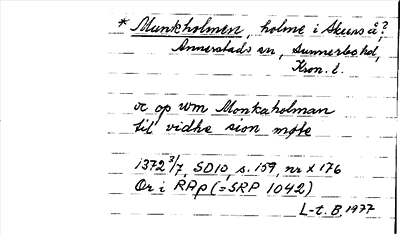 * Munkholmen, holme i Skeens å?
Annerstads sn, Sunnerbo hd,
Kron. l.
oc op wm Monkaholman
til vidhe sion møte
1372 3/7, SD10, s. 159, nr X 176
Or i RAp (=SRP 1042)
L-t. B. 1977